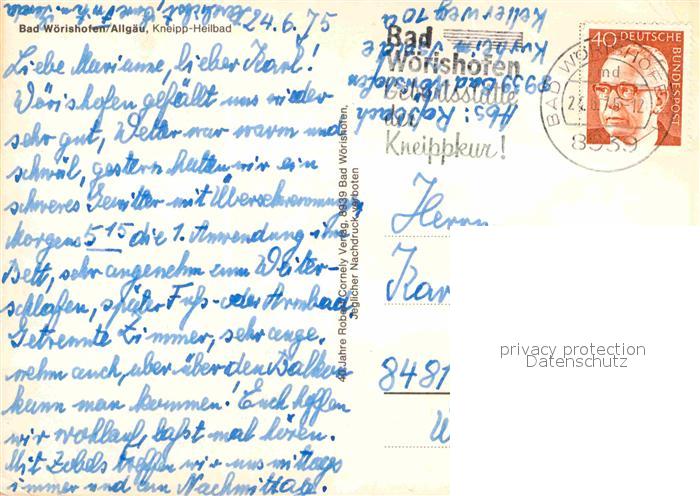 Bad Wörishofen/Allgäu, Kneipp-Heilbad
24.6.75
Liebe Marianne, lieber Karl!
Wörishofen gefällt uns wieder
sehr gut, Wetter war warm und
schwül, gestern hatten wir ein
schweres Gewitter mit Überschwemmung
Morgens 5 15 die 1. Anwendung im
Bett, sehr angenehm zum Weiter-
schlafen, später Fuß- oder Armbad.
Getrennte Zimmer, sehr ange-
nehm auch, aber über den Balkon
kann man kommen! Euch hoffen
wir wohlauf, laßt mal hören.
Mit Zobels treffen wir uns mittags
immer und am Nachmittag.
40 Jahre Robert Cornely Verlag, 8939 Bad Wörishofen,
Jeglicher Nachdruck verboten
Abs:
8939 Bad Wörishofen
Kurheim
Kellerweg 10a
Bad
Wörishofen
Geburtsstätte
der
Kneippkur!
BAD WÖRISHOFEN 1
nd
24.6.75-12
8939
40 DEUTSCHE
BUNDESPOST
Herrn
Kar
8481
W
privacy protection
Datenschutz